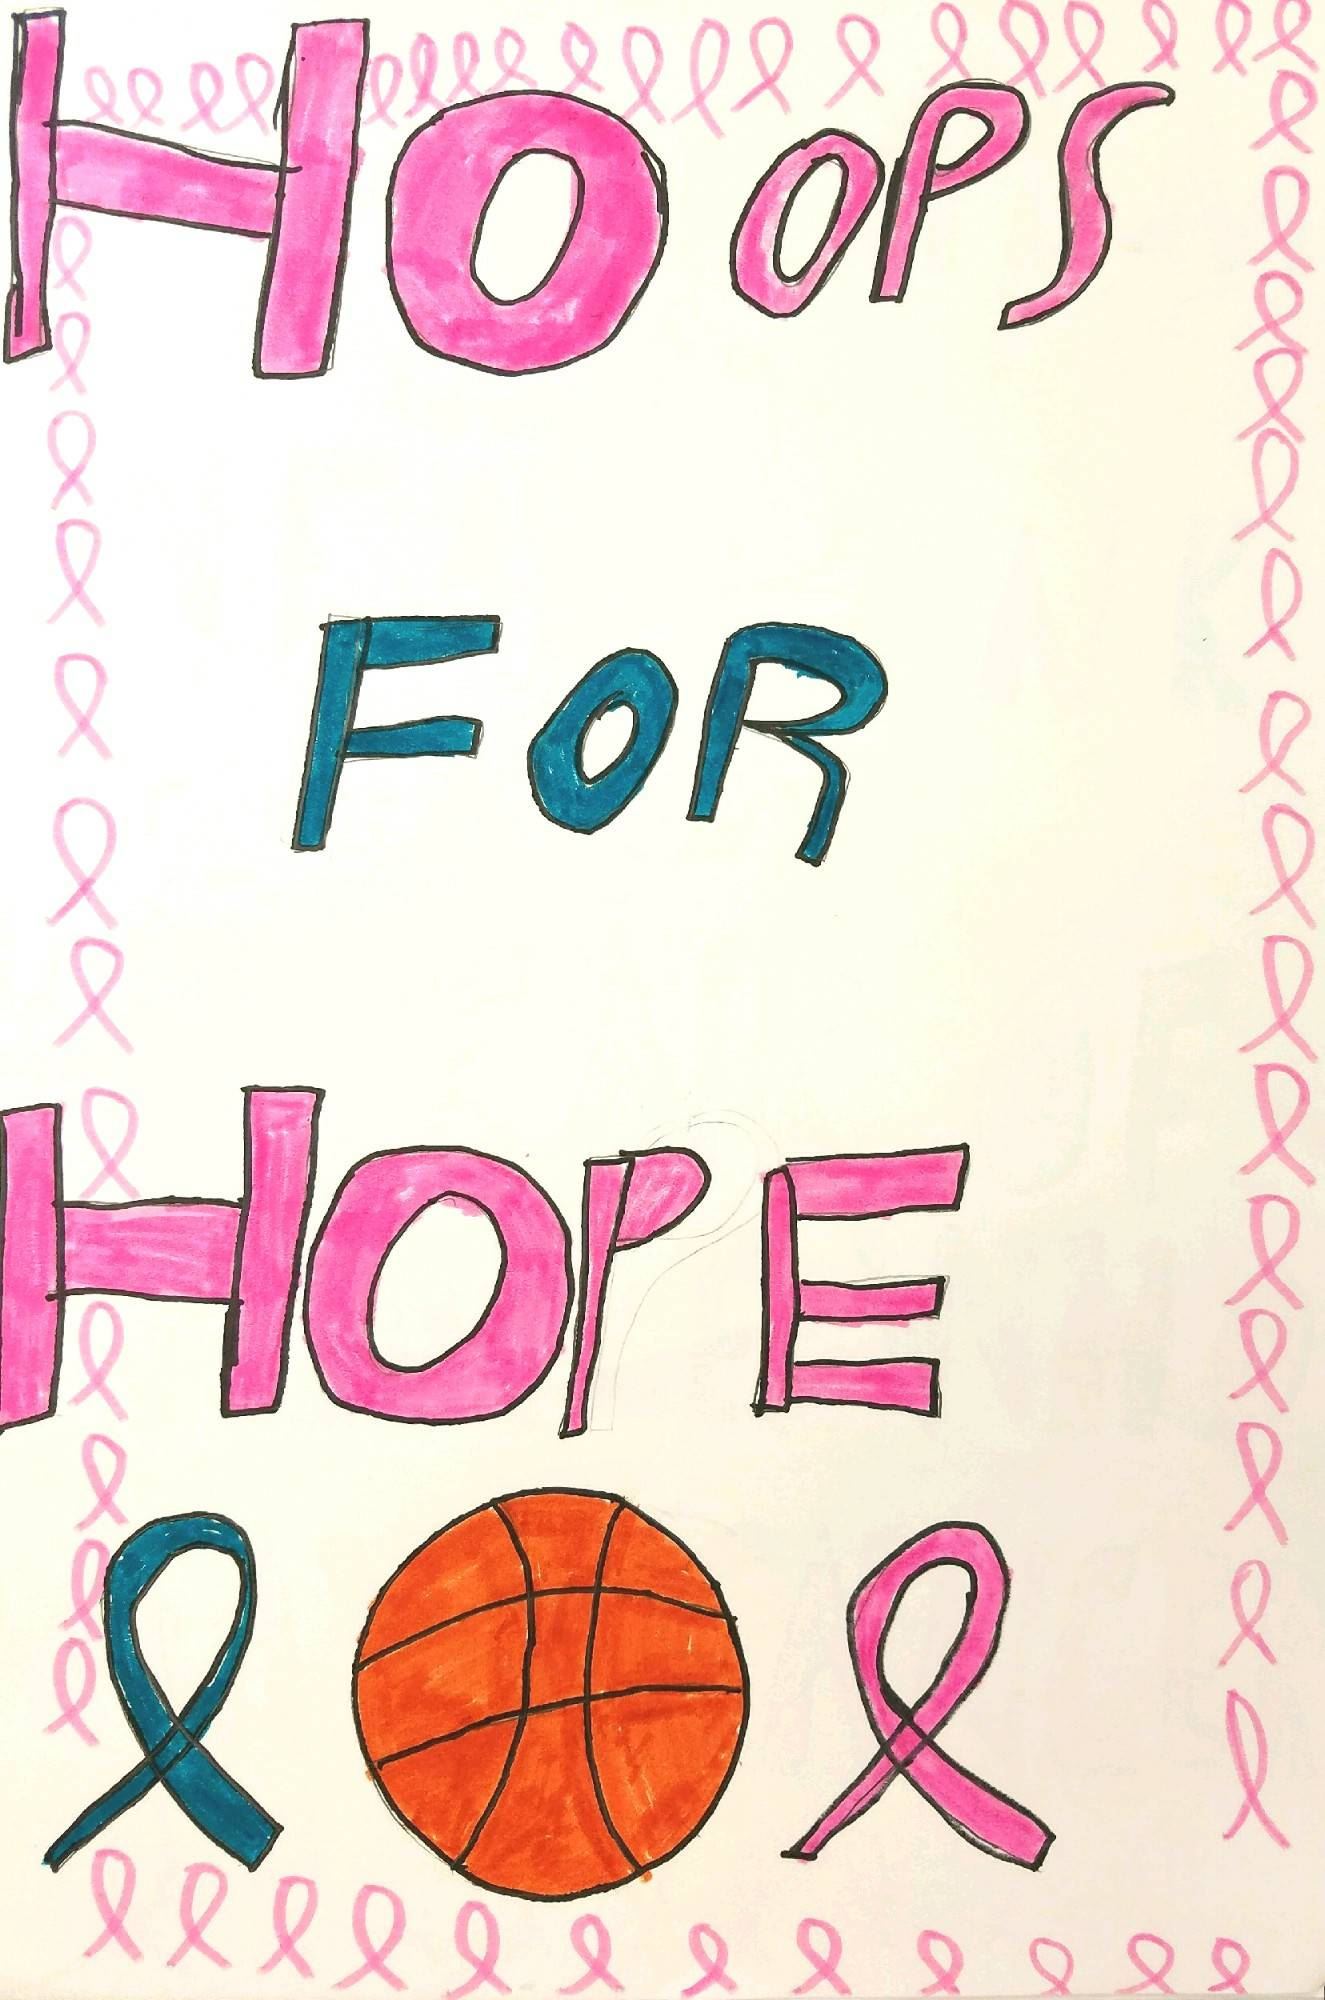 HOOPS
FOR
HOPE